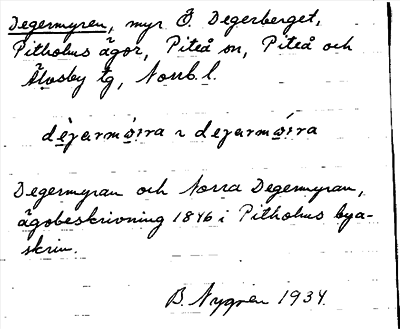 Degermyren, myr Ö. Degerberget,
Pitholms ägor, Piteå sn, Piteå och
Älvsby tg, Norrb. l.
dèjarmørra ~ dejarmørra
Degermyran och Norra Degermyran,
ägobeskrivning 1846 i Pitholms bya-
skrin.
B. Nygren 1934.